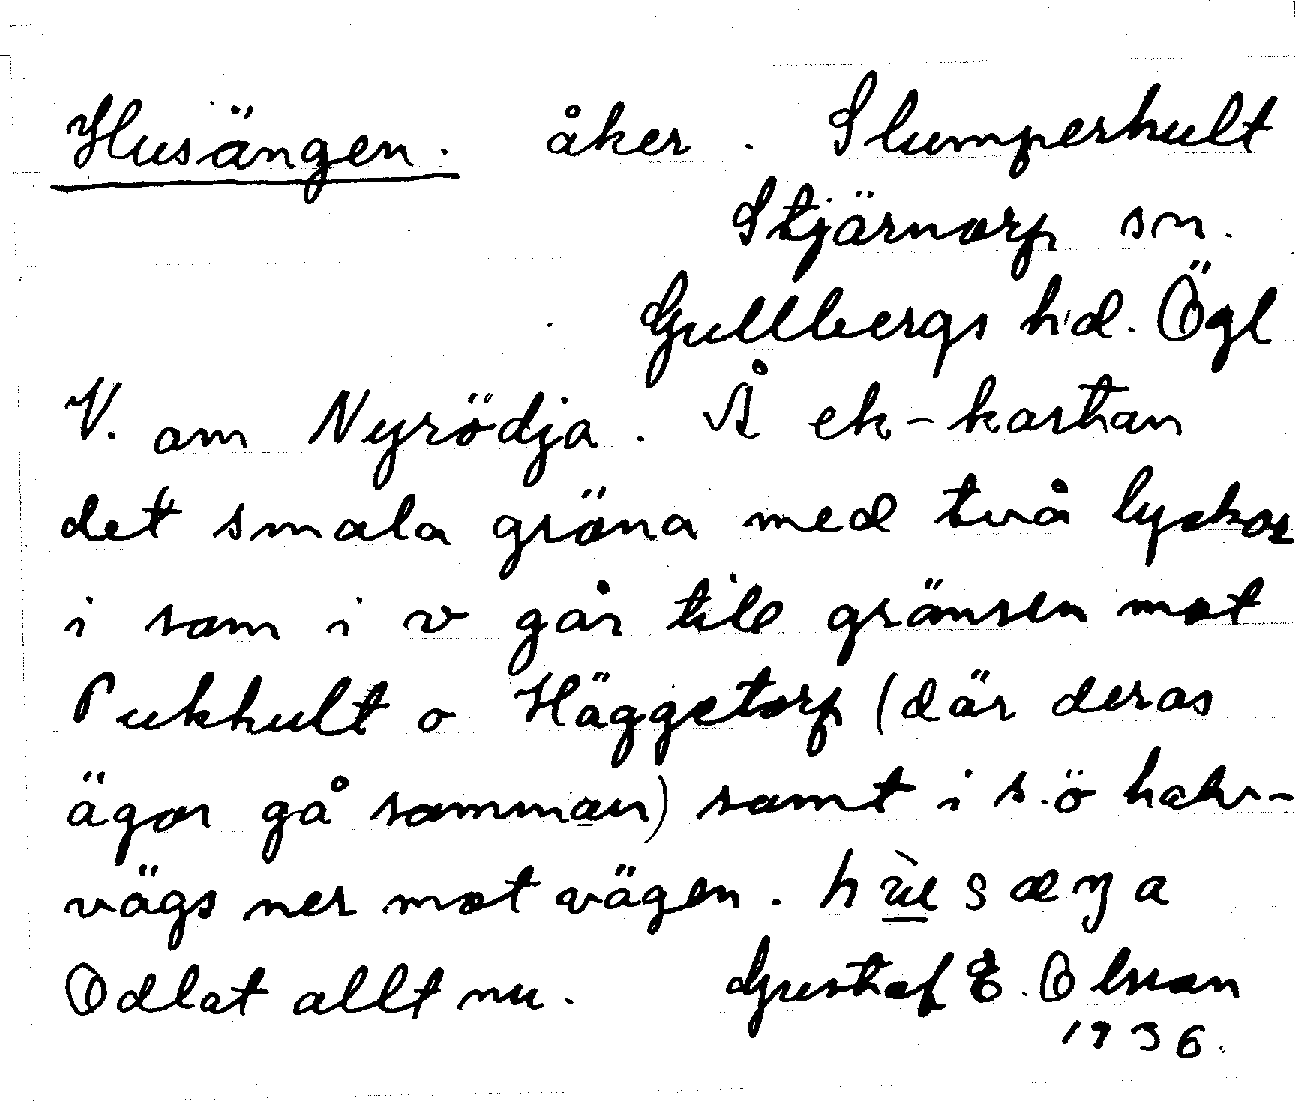 Husängen. åker. Slumperhult
Stjärnorp sn.
Gullbergs hd. Ögl
V. om Nyrödja. Å ek-kartan
det smala gröna med två lyckor
i som i v går till gränsen mot
Pukhult o Häggetorp (där deras
ägor gå samman) samt i s.ö halv-
vägs ner mot vägen.
Odlat allt nu. Gustaf E. Olson
1936.